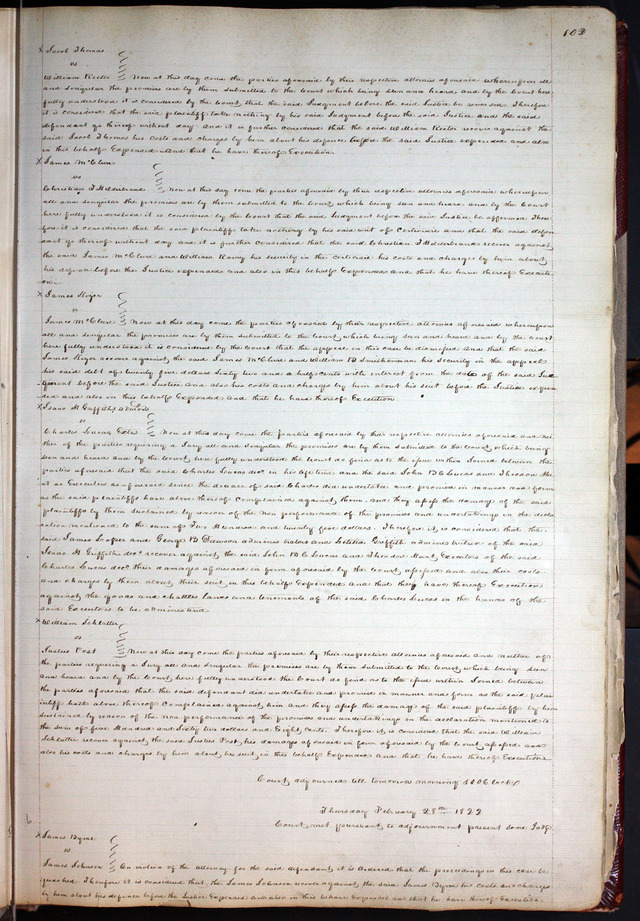 103
x Jacob Thomas
vs
William Rector Now at this day come the parties aforesaid by their respective attornies aforesaid whereupon all
and Singular the premises are by them submitted to the Court which being seen and heard and by the Court here
fully understood it is considered by the Court, that the said Judgment before the said Justice be reversed Therefore
it is considered that the said plaintiff take nothing by his said Judgment before the said Justice and the said
defendant go thereof without day and it is further considered that the said William Rector recover against the
said Jacob Thomas his costs and charges by him about his defence before the said Justice expended and also
in this behalf Expended And that he have thereof Execution
x James McClure
vs
Christian T Hildebrand Now at this day come the parties aforesaid by their respective attornies aforesaid whereupon
all and singular the premises are by them submitted to the Court, which being seen and heard and by the Court
here fully understood it is considered by the Court that the said Judgment before the said Justice be affirmed There
fore it is considered that the said plaintiff take nothing by his said writ of Certiorari and that the said defen
dant go thereof without day and it is further considered that the said Christian T Hildebrand recover against
the said James McClure and William Ramey his security in the certiorari his costs and charges by him about
his defence before the Justice expended and also in this behalf Expended and that he have thereof Executi
on
x James Stryer
vs
James McClure Now at this day come the parties aforesaid by their respective attornies aforesaid whereupon
all and singular the premises are by them submitted to the Court, which being seen and heard and by the court
here fully understood it is considered by the Court that the appeal in this case be dismissed and that the said
James recover against the said James McClure and William B his Security in the appeal
his said debt of twenty five dollars Sixty two and a half cents with interest from the date of the said Jud
gment before the said Justice and also his costs and charges by him about his suit before the Justice expen
ded and also in this behalf Expended and that he have thereof Execution
x Isaac H Griffiths admors
vs
Charles Lucas Extrs Now at this day come the parties aforesaid by their respective attornies aforesaid and nei
ther of the parties requiring a Jury all and Singular the premises are by them submitted to the Court, which being
seen and heard and by the Court here fully understood the Court do find as to the issue within Joined between the
parties aforesaid that the said Charles Lucas decd in his life time and the said John B C Lucas and Theodore Hu
nt as Executors as aforesaid since the decease of said Charles did undertake and promise in manner and form
as the said plaintiffs have above thereof Complained against them, and they assess the damage of the said
plaintiffs by them sustained by reason of the non performance of the promises and undertakings in the decla
ration mentioned to the sum of Two Hundred and twenty five dollars. Therefore it, is considered that the
said James Loper and George B Dawson administrators and Letitia Griffith adminstratrix of the said
Isaac H Griffiths decd recover against, the said John B C Lucas and Theodore Hunt, Executors of the said
Charles Lucas decd their damages aforesaid in form aforesaid by the court, assessed and also their costs
and charges by them about their suit in this behalf Expended and that they have thereof Execution
against the goods and chattles lands and tenements of the said Charles Lucas in the hands of the
said Executors to be administered
x William Schlatter
vs
Justus Post Now at this day come the parties aforesaid by their respective attornies aforesaid and neither of
the parties requiring a Jury all and Singular the premises are by them submitted to the Court, which being seen
and heard and by the Court here fully understood the Court do find as to the issue within Joined between
the parties aforesaid that the said defendant did undertake and promise in manner and form as the said Plai
ntiff hath above thereof Complained against him and they assess the damage of the said plaintiff by him
sustained by reason of the non performance of the promises and undertakings in the declaration mentioned to
the sum of five Hundred and Sixty two dollars and Eighty Cents. Therefore it is considered that the said William
Schlatter recover against, the said Justus Post, his damages aforesaid in form aforesaid by the Court assessed and
also his costs and charges by him about, his suit, in this behalf Expended and that he have thereof Execution
Court, adjourned till tomorrow morning 10 OClock
Thursday February 28th 1822
Court, met pursuant to adjournment present same Judge
x James Byrne
vs
James Johnson On motion of the attorney for the said defendant, it is ordered that the proceedings in this case be
quashed. Therefore it is considered that, the James Johnson recover against, the said James Byrne his costs and charges
by him about his defence before the Justice Expended and also in this behalf Expended and that he have thereof Execution